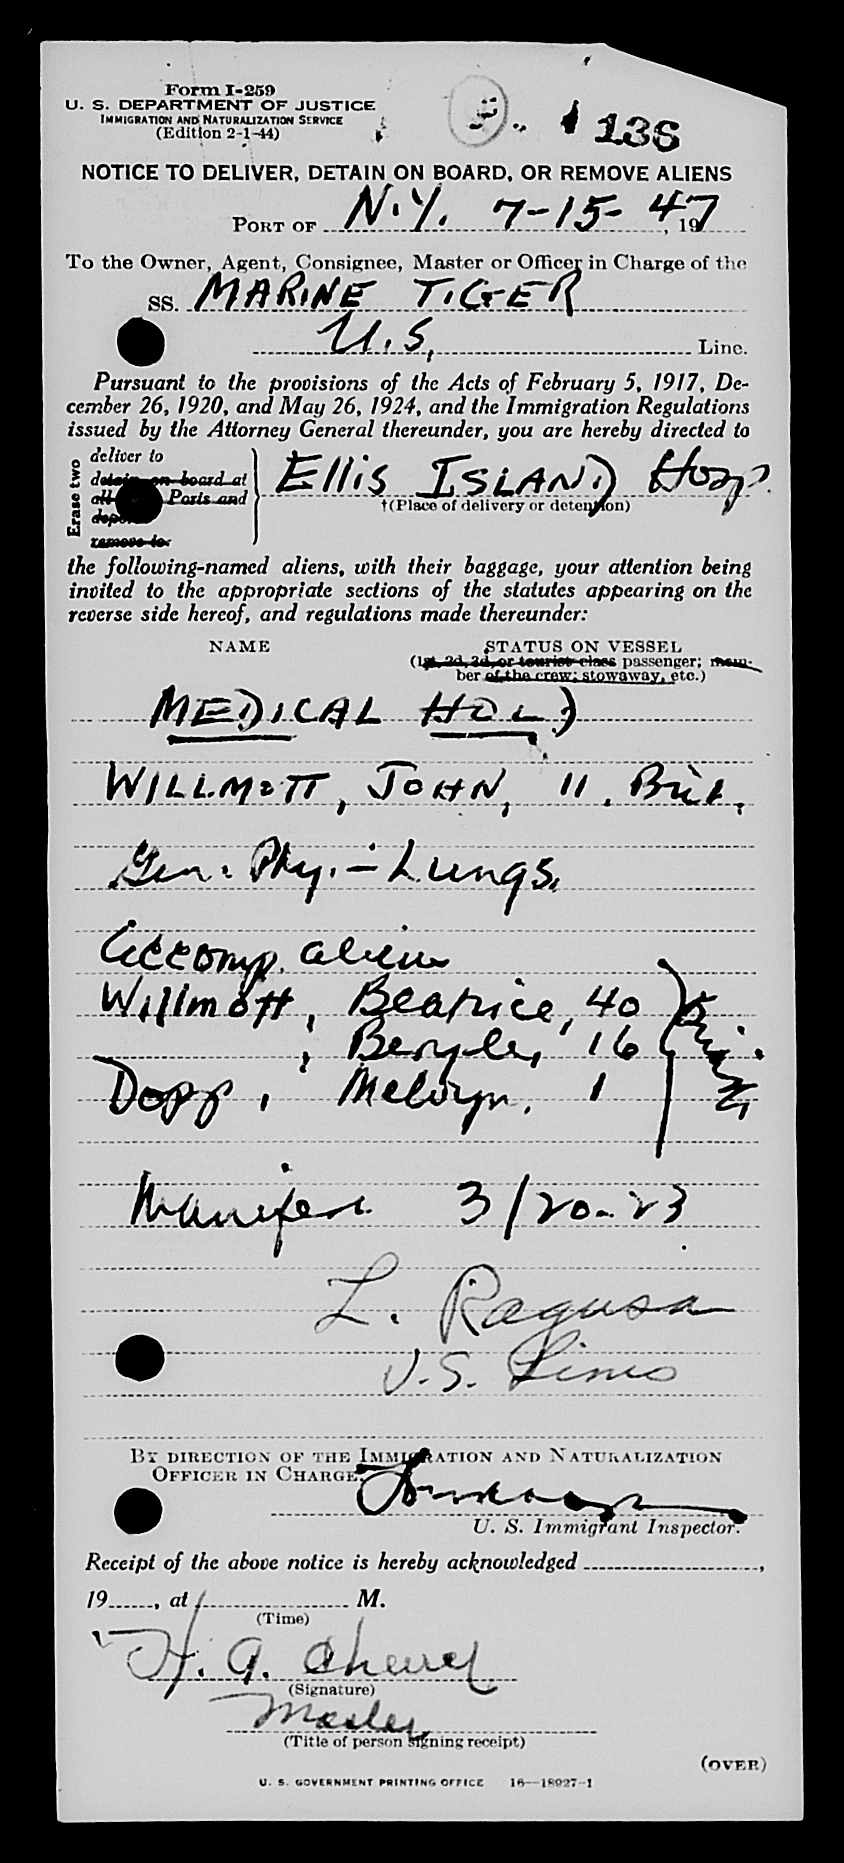 Form I-259
U. S. DEPARTMENT OF JUSTICE
IMMIGRATION AND NATURALIZATION SERVICE
(Edition 2-1-44)
136
NOTICE TO DELIVER, DETAIN ON BOARD, OR REMOVE ALIENS
PORT OF N.Y. 7-15-47, 19
To the Owner, Agent, Consignee, Master or Officer in Charge of the
SS. MARINE TIGER
U.S. Line.
Pursuant to the provisions of the Acts of February 5, 1917, De-
cember 26, 1920, and May 26, 1924, and the Immigration Regulations
issued by the Attorney General thereunder, you are hereby directed to
Erase two
deliver to
detain on board at
all Ports and
remove to
Ellis ISLAND Hosp.
†(Place of delivery or detention)
the following-named aliens, with their baggage, your attention being
invited to the appropriate sections of the statutes appearing on the
reverse side hereof, and regulations made thereunder:
NAME
STATUS ON VESSEL
(1st, 2d, 3d, or tourist class passenger; mem-
ber of the crew; stowaway, etc.)
MEDICAL HOLD
WILLMOTT, JOHN, 11, Brit.
Gen. Phy. - Lungs.
Accomp. alien
Willmott, Beatrice, 40
, Beryle, 16
Dopp, Melvyn, 1
Brit.
Manifest 3/20-23
L. Ragusa
U.S. Lines
BY DIRECTION OF THE IMMIGRATION AND NATURALIZATION
OFFICER IN CHARGE.
U. S. Immigrant Inspector.
Receipt of the above notice is hereby acknowledged ,
19 , at M.
(Time)
H. A.
(Signature)
Master
(Title of person signing receipt)
(OVER)
U. S. GOVERNMENT PRINTING OFFICE 16—18927-1